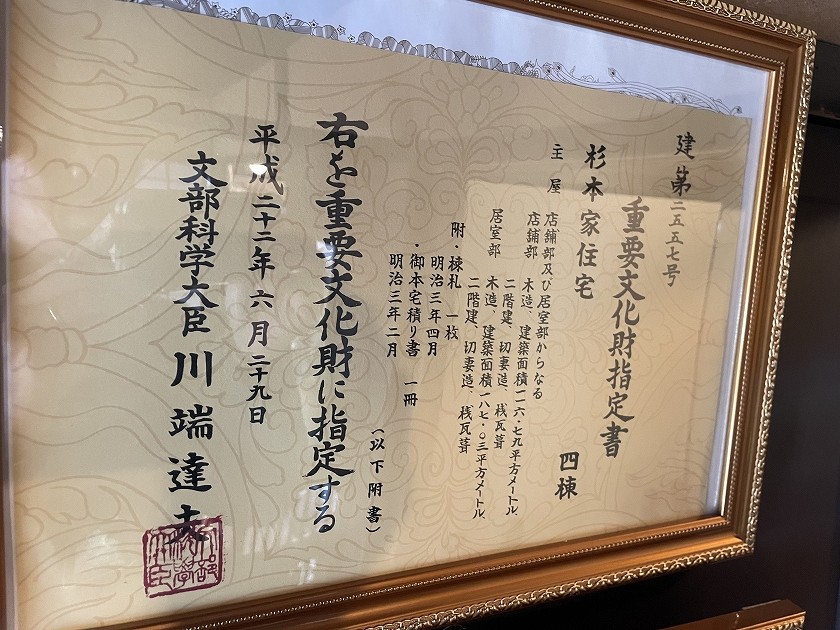 建第二五五七号
重要文化財指定書
杉本家住宅 四棟
主屋 店舗部及び居室部からなる
店舗部 木造、建築面積一一六・七九平方メートル、
二階建、切妻造、桟瓦葺
居室部 木造、建築面積一八七・〇三平方メートル、
二階建、切妻造、桟瓦葺
附・棟札 一枚
明治三年四月
・御本宅積り書 一冊
明治三年二月
(以下附書)
右を重要文化財に指定する
平成二十二年六月二十九日
文部科学大臣 川端達夫